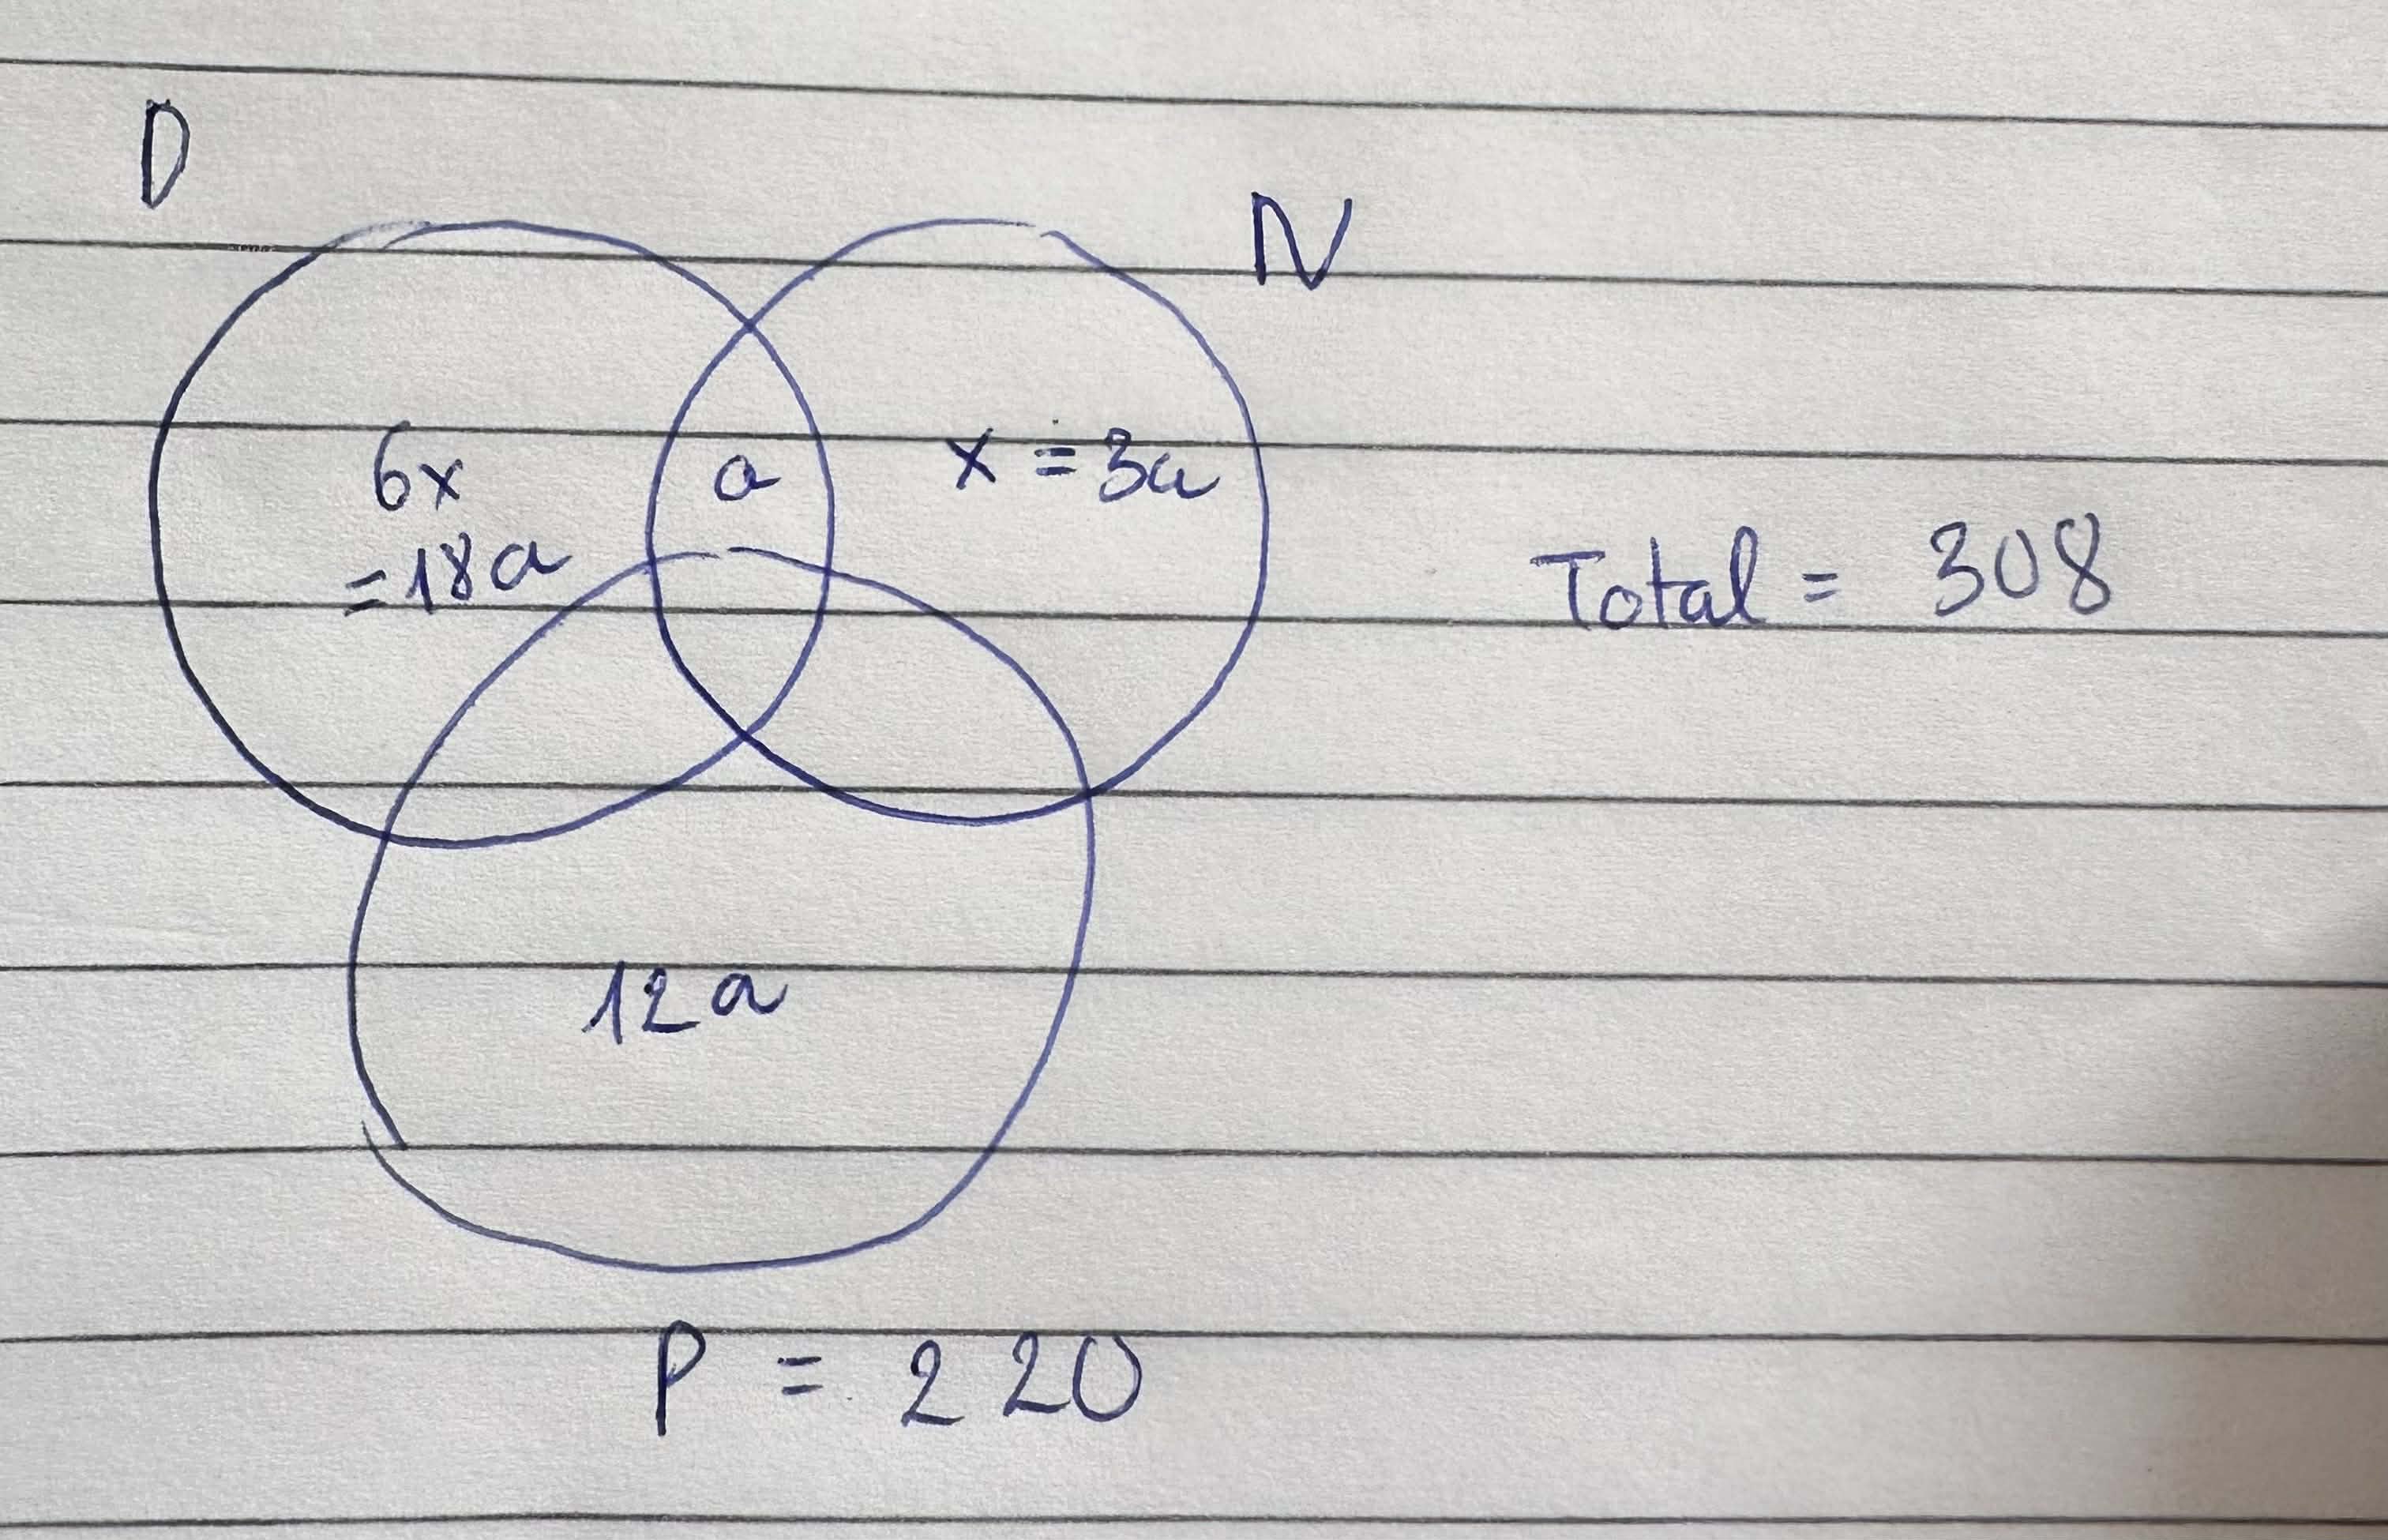 D
N
6x
= 18a
a
x = 3a
Total = 308
12a
P = 220